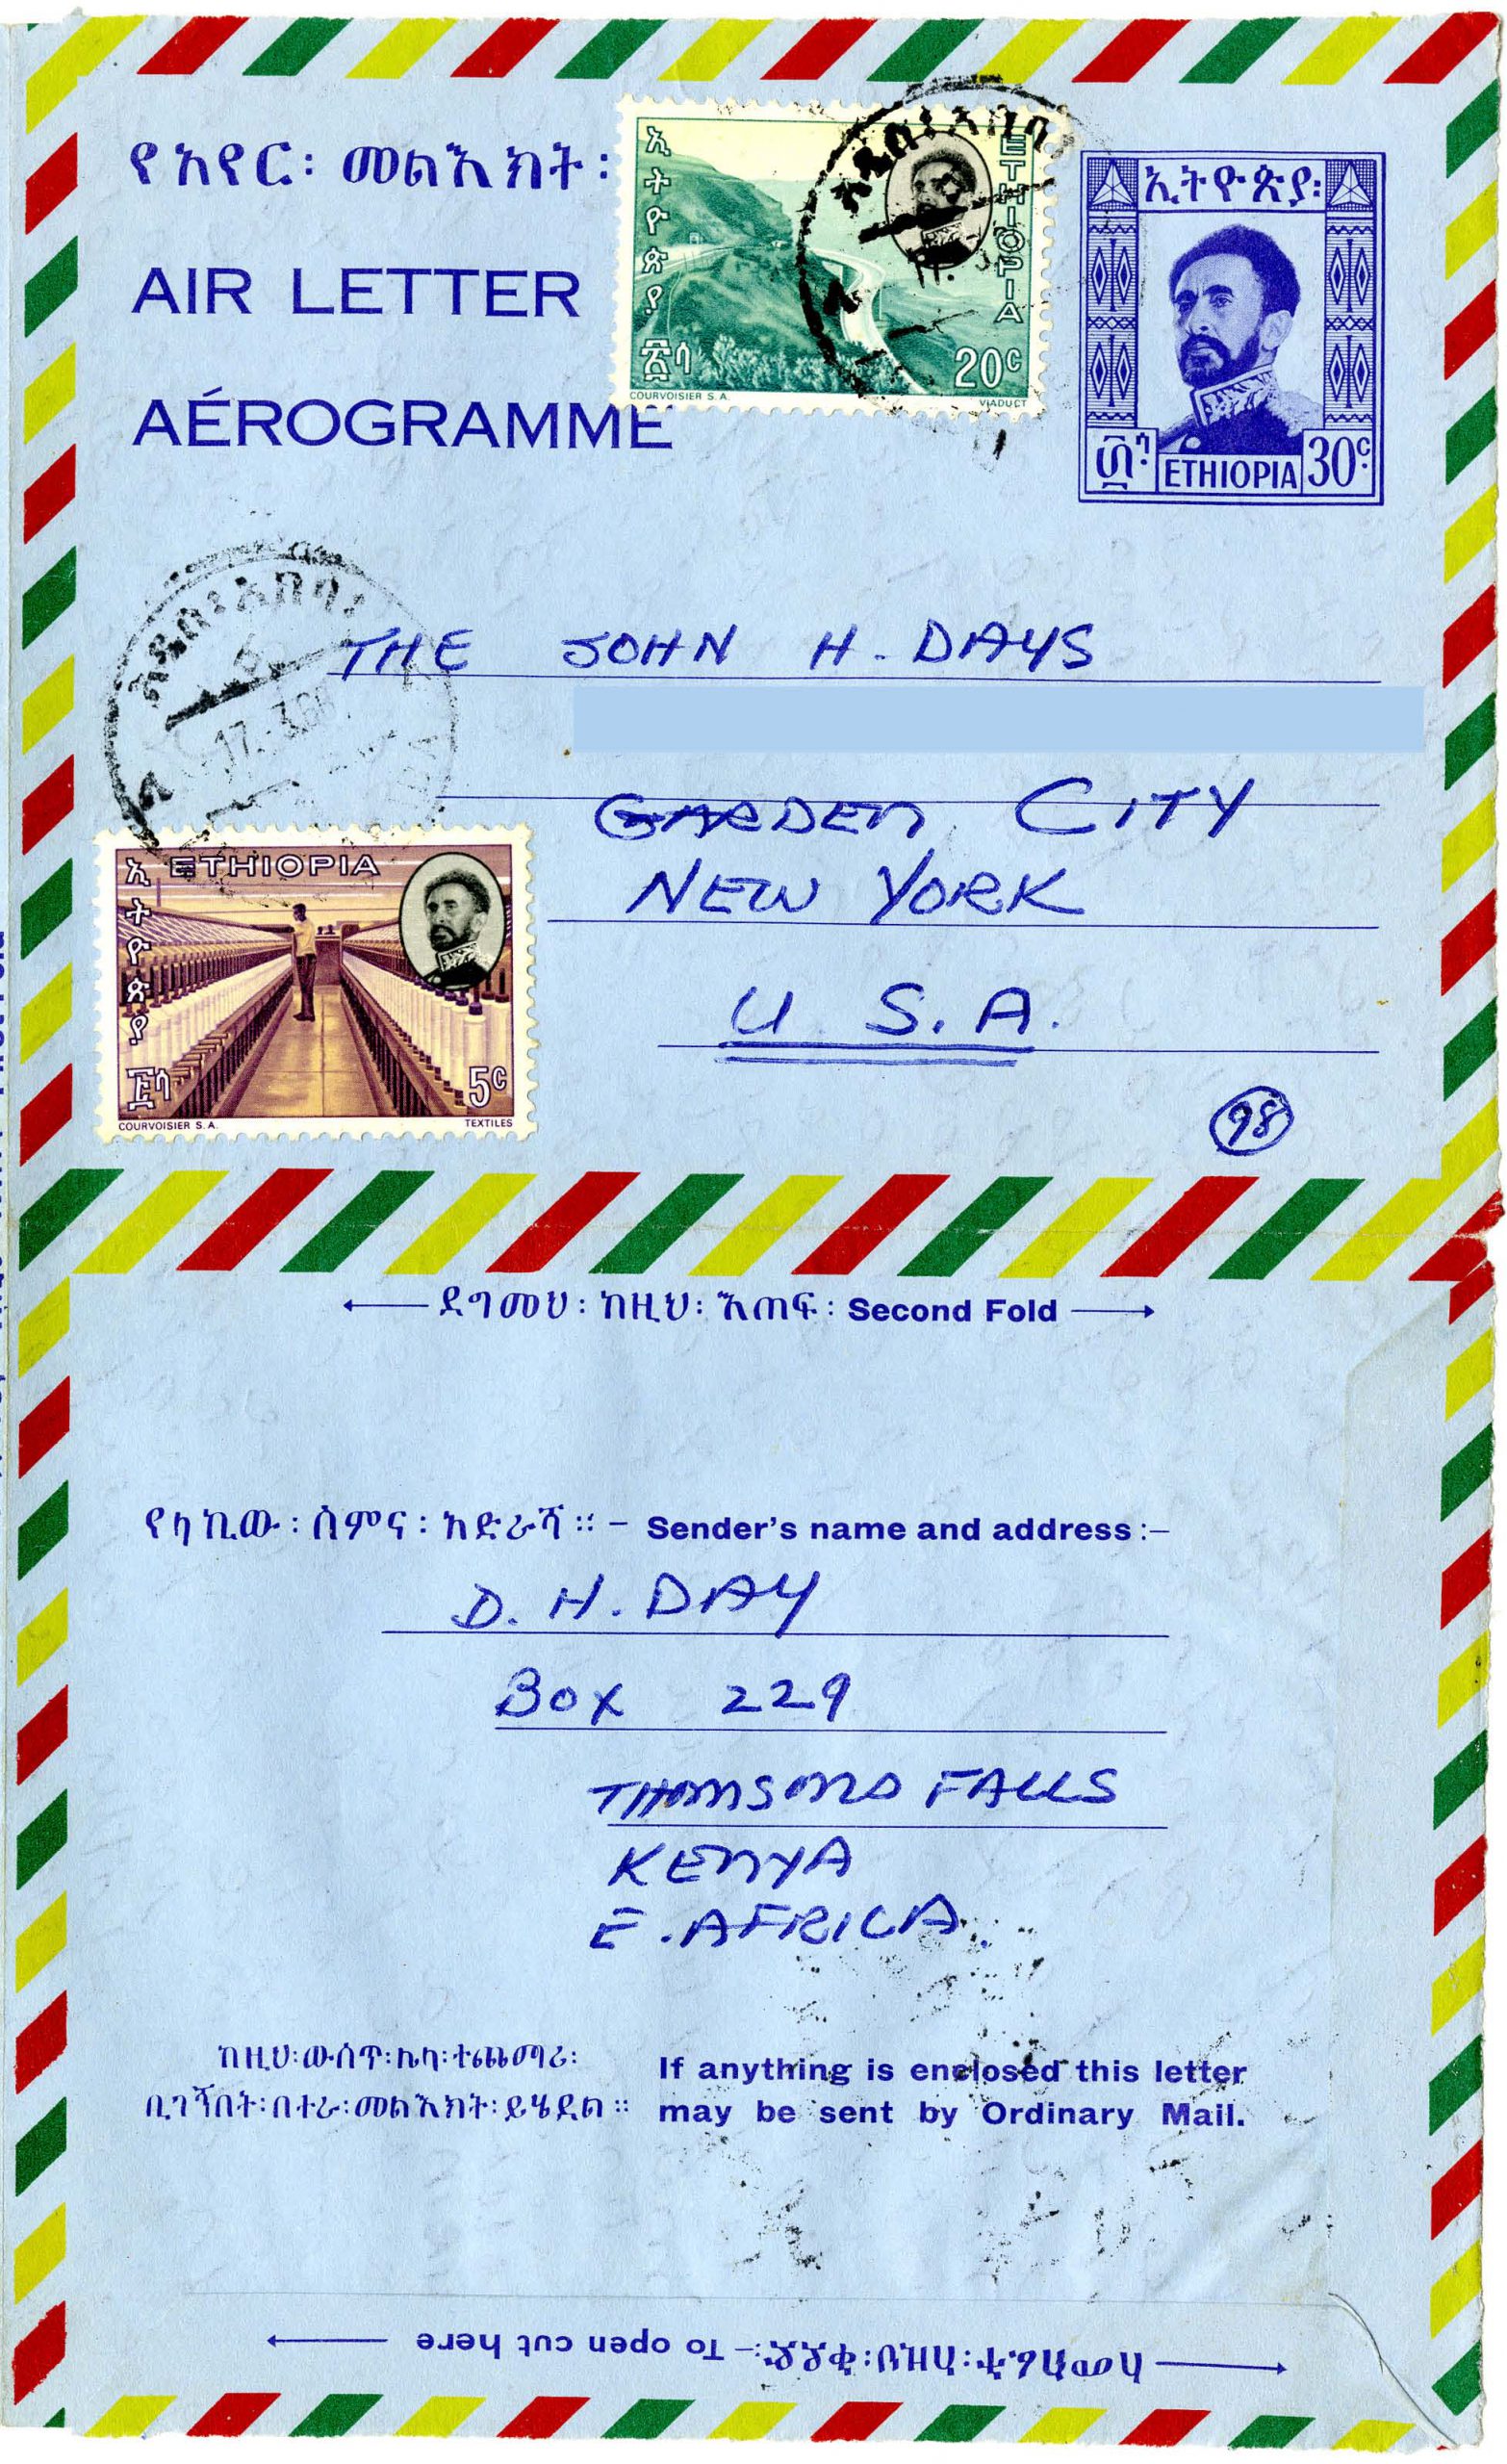 የአየር፡ መልእክት፡
AIR LETTER
AÉROGRAMME
ኢትዮጵያ
ETHIOPIA
፳ሳ
20c
COURVOISIER S.A.
VIADUCT
ኢትዮጵያ፡
፴ሳ
ETHIOPIA
30c
አዲስ፡አበባ
አዲስ፡አበባ፡
17.3.66
THE JOHN H. DAYS
GARDEN CITY
NEW YORK
U.S.A.
98
ETHIOPIA
ኢትዮጵያ
፭ሳ
5c
COURVOISIER S.A.
TEXTILES
ደግመህ፡ ከዚህ፡ እጠፍ፡ Second Fold
የላኪው፡ ስምና፡ አድራሻ። – Sender's name and address :–
D. H. DAY
BOX 229
THOMSONS FALLS
KENYA
E. AFRICA.
ከዚህ፡ውስጥ፡ሌላ፡ተጨማሪ፡
ቢገኝበት፡በተራ፡መልእክት፡ይሄዳል።
If anything is enclosed this letter
may be sent by Ordinary Mail.
ለመክፈት፡ከዚህ፡ቅደድ፡– To open cut here